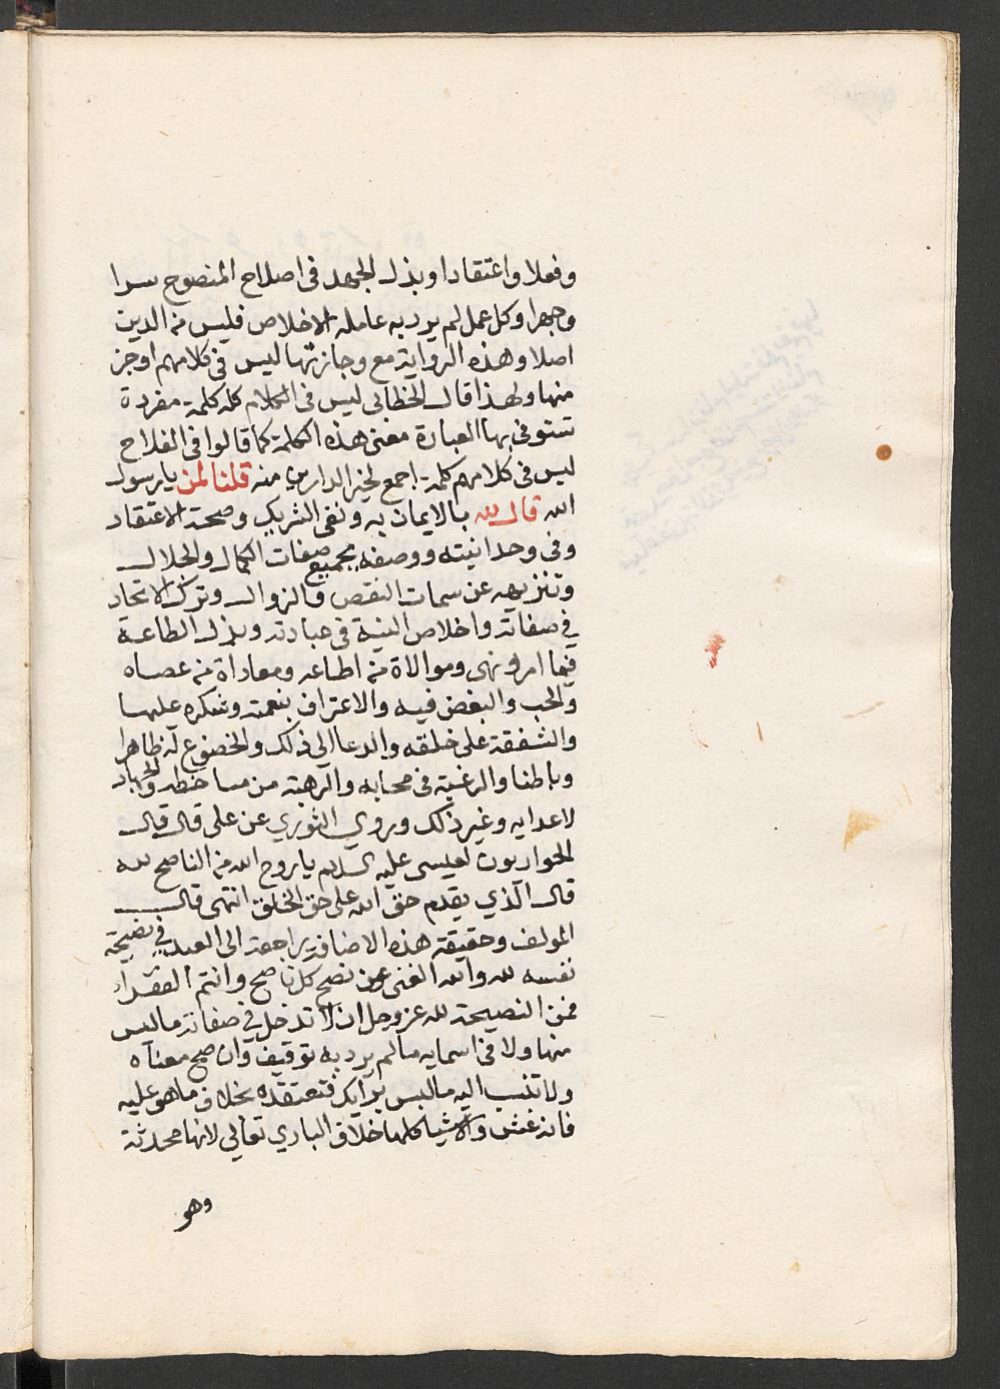 وفعلا واعتقادا وبذل الجهد فى اصلاح المنصوح سرا
وجهرا وكل عمل لم يرد به عامله الاخلاص فليس من الدين
اصلا وهذه الرواية مع وجازتها ليس فى كلامهم اوجز
منها ولهذا قال الخطابى ليس فى الكلام كله كلمة مفردة
تستوفى بها العبارة معنى هذه الكلمة كما قالوا فى الفلاح
ليس فى كلامهم كلمة اجمع لخير الدارين منه قلنا لمن يا رسول
الله قال لله بالايمان به ونفى الشريك وصحة الاعتقاد
وفى وحدانيته ووصفه بجميع صفات الكمال والجلال
وتنزيهه عن سمات النقص والزوال وترك الاتحاد
فى صفاته واخلاص النية فى عبادته وبذل الطاعة
فيما امر ونهى وموالاة من اطاعه ومعاداة من عصاه
والحب والبغض فيه والاعتراف بنعمته وشكره عليها
والشفقة على خلقه والدعا الى ذلك والخضوع له ظاهرا
وباطنا والرغبة فى محابه والرهبة من مساخطه والجهاد
لاعدايه وغير ذلك وروي الثوري عن على قال قال
الحواريون لعيسى عليه السلام يا روح الله من الناصح لله
قال الذي يقدم حق الله على حق الخلق انتهى قال
المولف وحقيقة هذه الاضافة راجعة الى العبد في نصيحة
نفسه لله والله الغنى عن نصح كل ناصح وانتم الفقراء
فمن النصيحة لله عز وجل ان لا تدخل في صفاته ما ليس
منها ولا فى اسمايه ما لم يرد به توقيف وان صح معناه
ولا تنسب اليه ما ليس برأيك فتعتقده بخلاف ما هو عليه
فانه غش والاشيا كلها خلاق الباري تعالى لانها محدثة
وهو